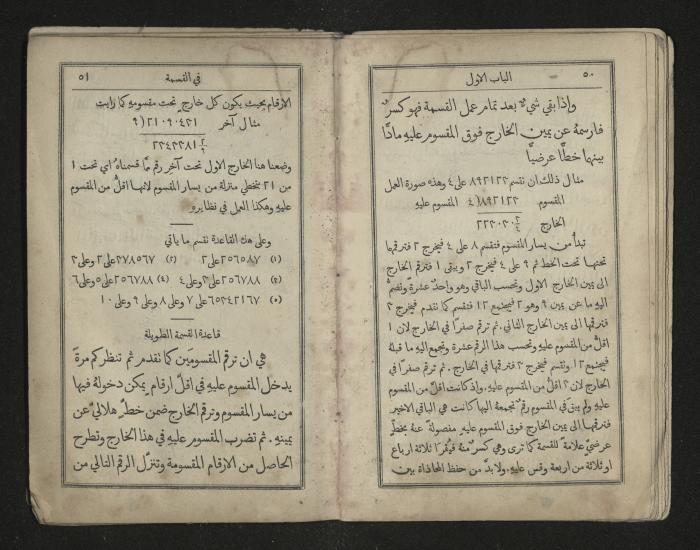 ٥٠
الباب الاول
واذا بقي شيءٌ بعد تمام عمل القسمة فهو كسرٌ
فارسمهُ عن يمين الخارج فوق المقسوم عليهِ مادًّا
بينهما خطًّا عرضيًّا
مثال ذلك ان نقسم ٨٩٢١٢٣ على ٤ وهذه صورة العمل
المقسوم ٨٩٢١٢٣(٤ المقسوم عليه
الخارج ٢٢٣٠٣٠ ٣/٤
تبدأ من يسار المقسوم فنقسم ٨ على ٤ فيخرج ٢ فترقمها
تحتها تحت الخط ثم ٩ على ٤ فيخرج ٢ ويبقى ١ فترقم الخارج
الى يمين الخارج الاول وتحسب الباقي وهو واحدٌ عشرةً وتضمُّ
اليهِ ما عن يمين ٩ وهو ٢ فيجتمع ١٢ فتقسم كما تقدم فيخرج ٣
فترقمها الى يمين الخارج الثاني. ثم ترقم صفرًا في الخارج لان ١
اقلُّ من المقسوم عليهِ وتحسب هذا الرقم عشرة وتجمع اليهِ ما قبلهُ
فيجتمع ١٢ وتقسم فيخرج ٣ فترقمها في الخارج. ثم ترقم صفرًا في
الخارج لان ٣ اقلُّ من المقسوم عليهِ. واذ كانت اقل من المقسوم
عليهِ ولم يبقَ في المقسوم رقمٌ تجمعهُ اليها كانت هي الباقي الاخير
فترقمها الى يمين الخارج فوق المقسوم عليهِ مفصولةً عنهُ بخطٍّ
عرضيٍّ علامةً للقسمة كما ترى وهي كسرٌ منهُ فيُقرَأ ثلاثة ارباع
او ثلاثة من اربعة وقس عليهِ. ولا بدَّ من حفظ المحاذاة بين
في القسمة
٥١
الارقام بحيث يكون كل خارجٍ تحت مقسومهِ كما رايت
مثال آخر ٢١٠٩٠٤٣١(٩
٢٣٤٣٣٨١ ٢/٩
وضعنا هنا الخارج الاول تحت آخر رقم مما قسمناهُ اي تحت ١
من ٢١ بتخطي منزلة من يسار المقسوم لانها اقلُّ من المقسوم
عليهِ وهكذا العمل في نظايره
وعلى هذه القاعدة نقسم ما ياتي
(١) ٢٥٦٥٨٧ على ٢ (٢) ٣٧٨٥٦٧ على ٢ وعلى ٣
(٣) ٢٥٦٧٨٨ على ٣ وعلى ٤ (٤) ٢٥٦٧٨٨ على ٥ وعلى ٦
(٥) ٦٥٣٤٢١٦٧ على ٧ وعلى ٨ وعلى ٩ وعلى ١٠
قاعدة القسمة الطويلة
هي ان ترقم المقسومَين كما تقدم ثم تنظر كم مرةً
يدخل المقسوم عليهِ في اقلّ ارقام يمكن دخولهُ فيها
من يسار المقسوم وترقم الخارج ضمن خطٍّ هلاليٍّ عن
يمينهِ. ثم تضرب المقسوم عليهِ في هذا الخارج وتطرح
الحاصل من الارقام المقسومة وتنزّل الرقم التالي من